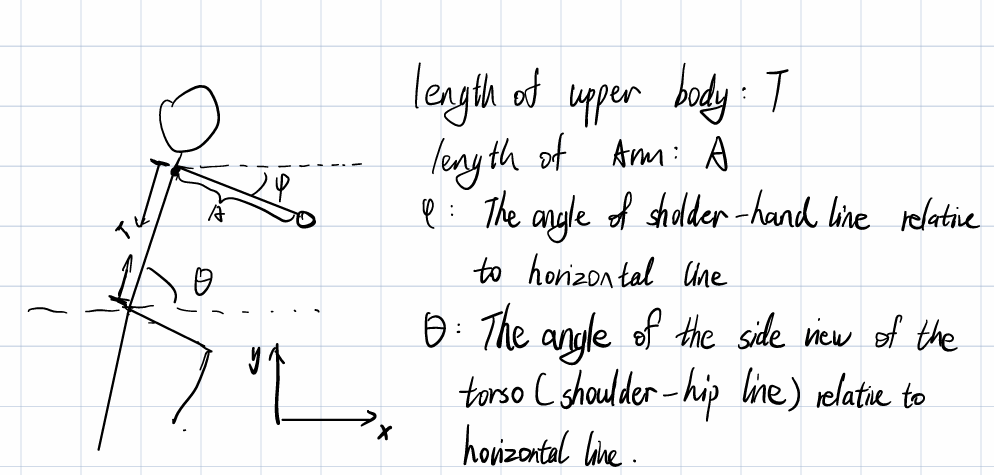 length of upper body: T
length of Arm: A
φ: The angle of sholder-hand line relative
to horizontal line
θ: The angle of the side view of the
torso (shoulder-hip line) relative to
horizontal line.
φ
A
T
θ
y
x